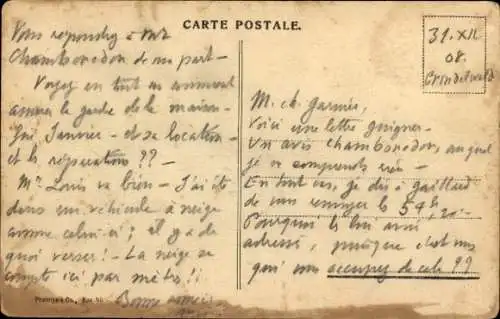 CARTE POSTALE.
31. XII
08.
Grindelwald
Vous répondrez à Mr
Chamboredon de ma part -
Voyez en tout au comment
assurer la garde de la maison -
Fri Janvier - et sa location -
et les réparations ??
Mr Louis va bien - J'ai été
dans un véhicule à neige
comme celui-ci ; il y a de
quoi verser ! - La neige se
compte ici par mètres !!
Bonne année
M. ch. Garnier,
Voici une lettre
Un avis Chamboredon, auquel
je ne comprends rien -
En tout cas, je dis à Gaillard
de vous envoyer les 54 fr,20 -
Pourquoi le lui avoir
adressé, puisque c'est vous
qui vous occupez de cela ??